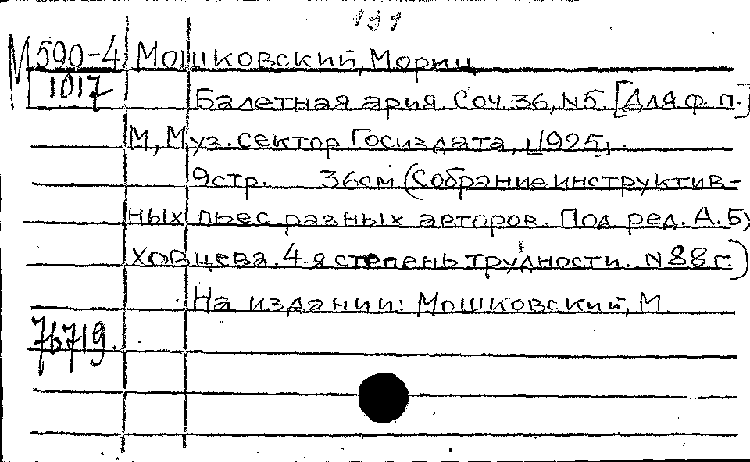 191
М 590-4 Мошковский, Мориц
1017
Балетная ария. Соч. 36, N5. [Для ф.п.]
М, Муз. сектор Госиздата, [1925].
9 стр. 36 см (Собрание инструктив-
ных пьес разных авторов. Под ред. А. Бу
ховцева. 4-я степень трудности. N 88 г)
На издании: Мошковский, М.
76719.